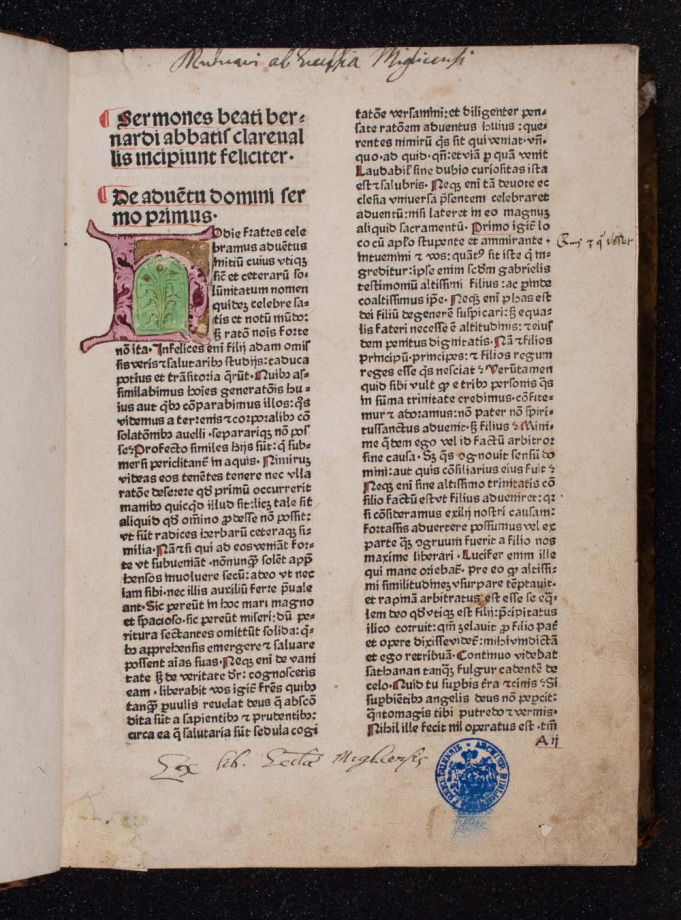 ab Ecclesia Miglicensi
Sermones beati ber⸗
nardi abbatis clareual
lis incipiunt feliciter·
De aduētu domini ser
mo primus·
Odie fratres cele
bramus aduētus
initiū cuius vtiqꝫ
sic̄ et ceterarū so⸗
lūnitatum nomen
quideꝫ celebre sa⸗
tis et notū mūdo:
sꝫ ratō nois forte
nō ita·Infelices enī filij adam omis
sis veris ⁊ salutaribꝰ studijs:caduca
potius et trāsitoria q̄rūt·Quibꝰ as⸗
similabimus hoīes generatōis hu⸗
ius aut qꝰ cōparabimus illos:q̄s
videmus a terrenis ⁊ corporalibꝰ cō
solatōnibꝰ auelli·separariqꝫ nō pos
se:Profecto similes hijs sūt:q̄ sub⸗
mersi periclitant᷑ in aquis·Nimiruꝫ
videas eos tenētes tenere nec vlla
ratōe deserere qd̄ primū occurrerit
manibꝰ quicq̄d illud sit:licꝫ tale sit
aliquid qd̄ omīno ꝓdesse nō possit:
vt sūt radices herbarū ceteraqꝫ si⸗
milia·Nā ⁊ si qui ad eos veniāt for⸗
te vt subueniāt·nōnunq̄ solēt app̄
hensos inuoluere secū:adeo vt nec
iam sibi·nec illis auxiliū ferre p̄uale
ant·Sic pereūt in hoc mari magno
et spacioso·sic pereūt miseri:dū pe⸗
ritura sectantes omittūt solida:q̄⸗
bꝰ apprehensis emergere ⁊ saluare
possent aīas suas·Neqꝫ enī de vani
tate sꝫ de veritate dr̄:cognoscetis
eam·liberabit vos igit᷑ frēs quibꝰ
tanq̄ ꝑuulis reuelat deus q̄ abscō
dita sūt a sapientibꝰ ⁊ prudentibꝰ:
circa ea q̄ salutaria sūt sedula cogi
tatōe versamini:et diligenter pen⸗
sate ratōem aduentus huius:que⸗
rentes nimirū q̄s sit qui veniat·vn̄·
quo·ad quid·qn̄:et viā ꝑ quā venit
Laudabil᷑ sine dubio curiositas ista
est ⁊ salubris·Neqꝫ eni tā deuote ec
clesia vniuersa p̄sentem celebraret
aduentū:nisi lateret in eo magnuꝫ
aliquid sacramentū·Primo igit᷑ lo
co cū aplo stupente et ammirante·
intuemini ⁊ vos:quāt᷑ sit iste q̄ in⸗
greditur:ipse enim scdm̄ gabrielis
testimoniū altissimi filius:ac ꝓinde
coaltissimus ip̄e·Neqꝫ enī phas est
dei filiū degenerē suspicari:sꝫ equa⸗
lis fateri necesse ē altitudinis:⁊ eius
dem penitus dignitatis·Nā ⁊ filios
principū·principes:⁊ filios regum
reges esse q̄s nesciat᷑ Verūtamen
quid sibi vult ꝙ e tribꝰ personis q̄s
in sūma trinitate credimus·cōfite⸗
mur ⁊ adoramus:nō pater nō spiri⸗
tussanctus aduenit·sꝫ filius᷑ Mini⸗
me q̄dem ego vel id factū arbitror
sine causa·Sꝫ q̄s ognouit sensū do
mini:aut quis cōsiliarius eius fuit᷑
Neqꝫ enī sine altissimo trinitatis cō
silio factū est vt filius adueniret:qꝛ
si cōsideramus exilij nostri causam:
fortassis aduertere possumus vel ex
parte q̄ꝫ ogruum fuerit a filio nos
maxime liberari·Lucifer enim ille
qui mane oriebat᷑·pre eo ꝙ altissi⸗
mi similitudineꝫ vsurpare tēptauit·
et rapinā arbitratus est esse se eq̄⸗
lem deo qd̄ vtiqꝫ est filij:p̄cipitatus
ilico corruit:qm̄ zelauit ꝓ filio pat᷑
et opere dixisse videt᷑:mihi vindictā
et ego retribuā·Continuo videbat
sathanan tanqꝫ fulgur cadentē de
celo·Quid tu suꝑbis t̄ra ⁊ cinis᷑ Si
suꝑbiētibꝰ angelis deus nō peꝑcit:
q̄ntomagis tibi putredo ⁊ vermis·
Nihil ille fecit nil operatus est·tm̄
A ij
Ex lib. Eccliae Miglicensis